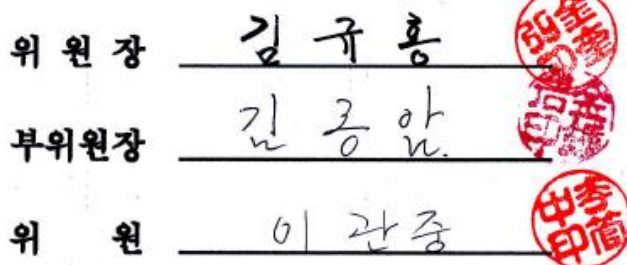 위 원 장 김 규 홍
부위원장 김 종 암.
위 원 이 관 중